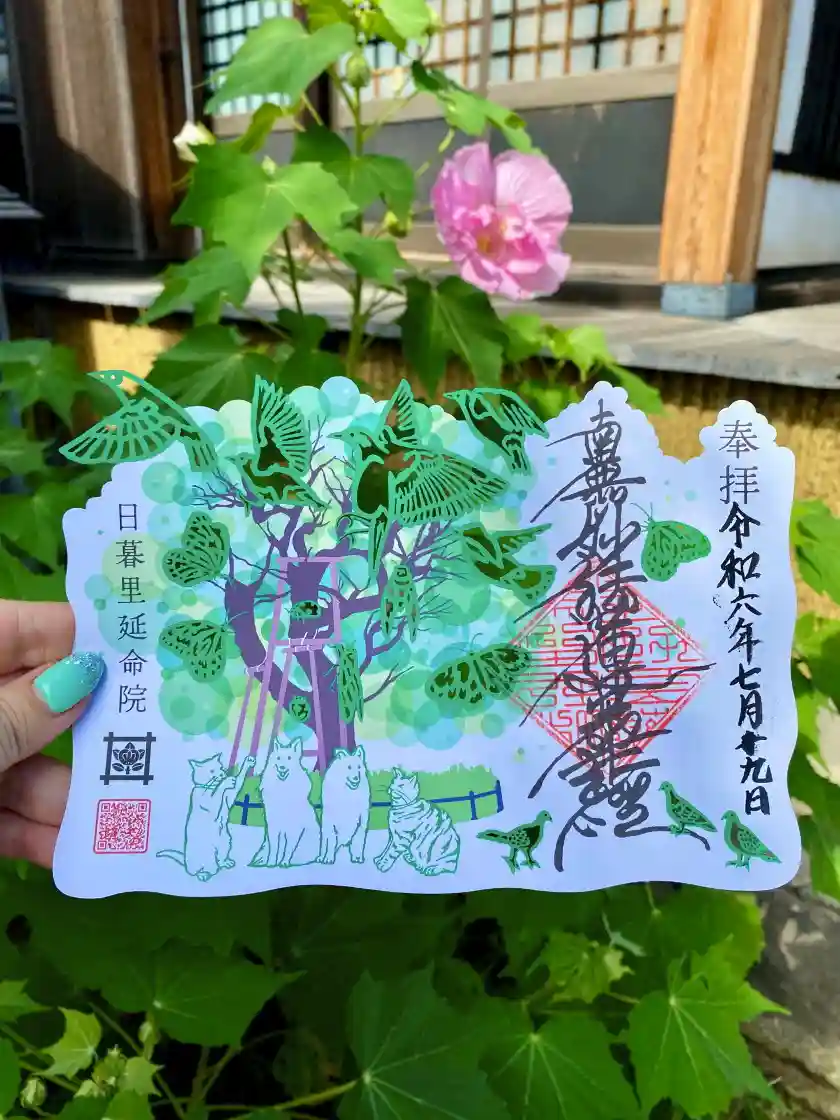 奉拝
令和六年七月廿九日
南無妙法蓮華経
日暮里延命院